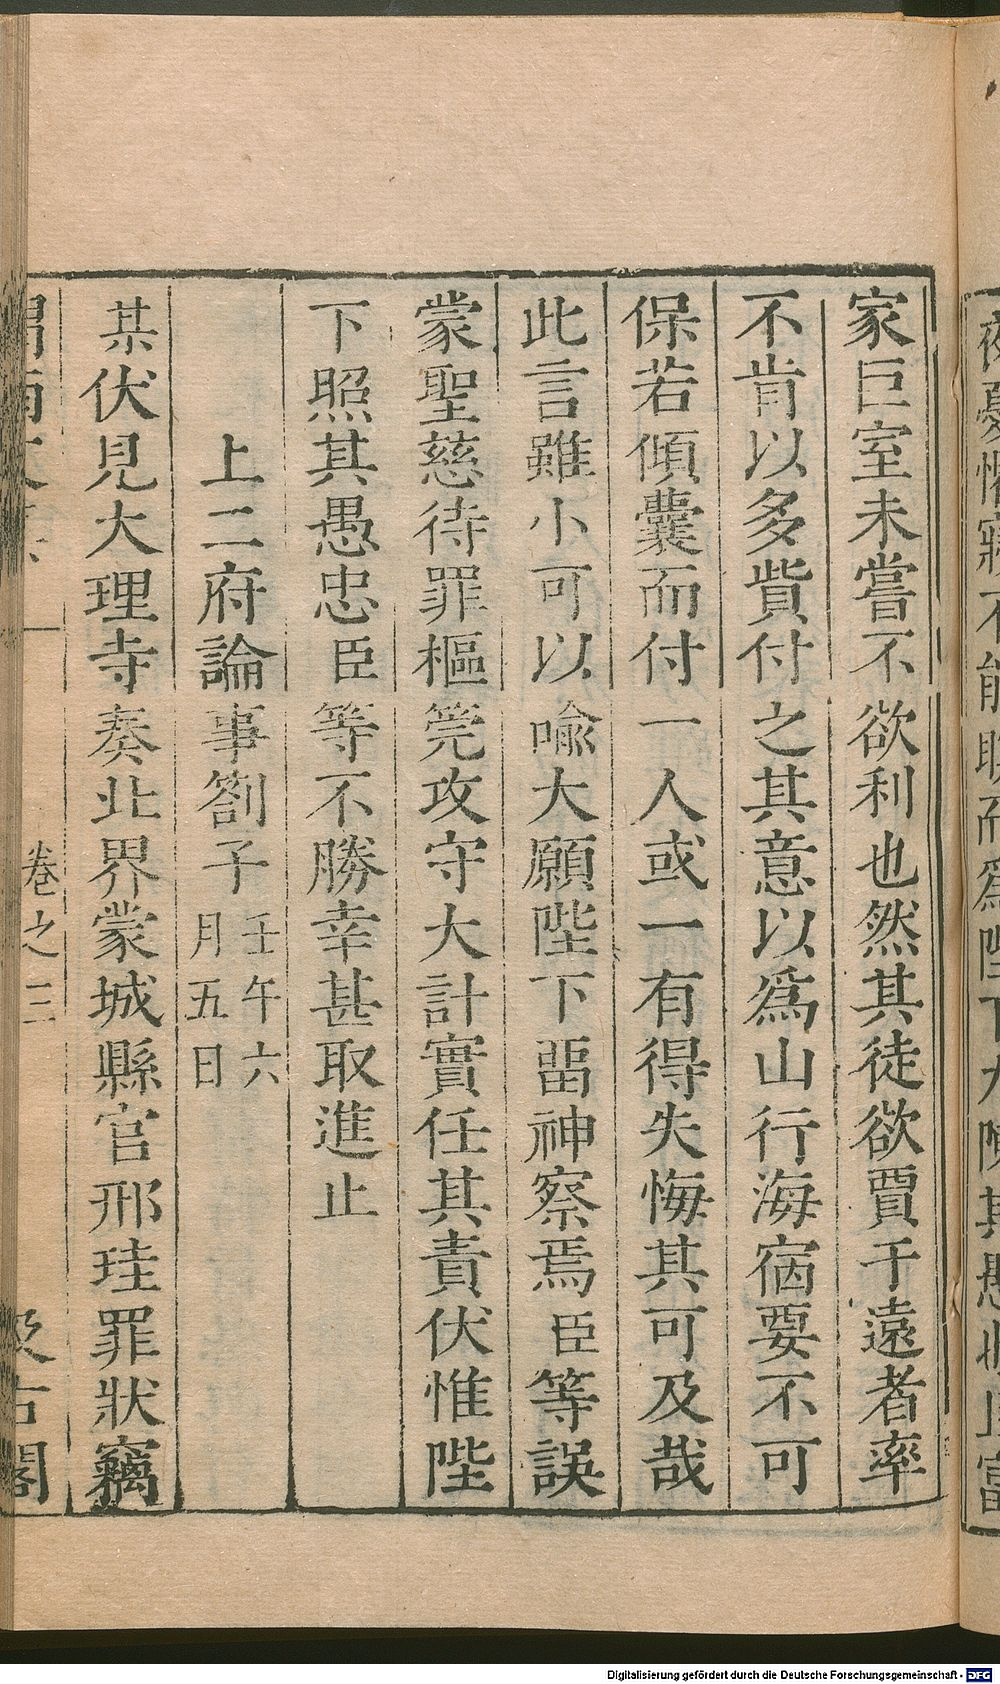 家巨室未嘗不欲利也然其徒欲賈于遠者率
不肯以多貲付之其意以爲山行海宿要不可
保若傾囊而付一人或一有得失悔其可及哉
此言雖小可以喻大願陛下畱神察焉臣等誤
蒙聖慈待罪樞筦攻守大計實任其責伏惟陛
下照其愚忠臣等不勝幸甚取進止
上二府論事劄子壬午六月五日
某伏見大理寺奏北界蒙城縣官邢珪罪狀竊
卷之三
汲古閣
Digitalisierung gefördert durch die Deutsche Forschungsgemeinschaft - DFG